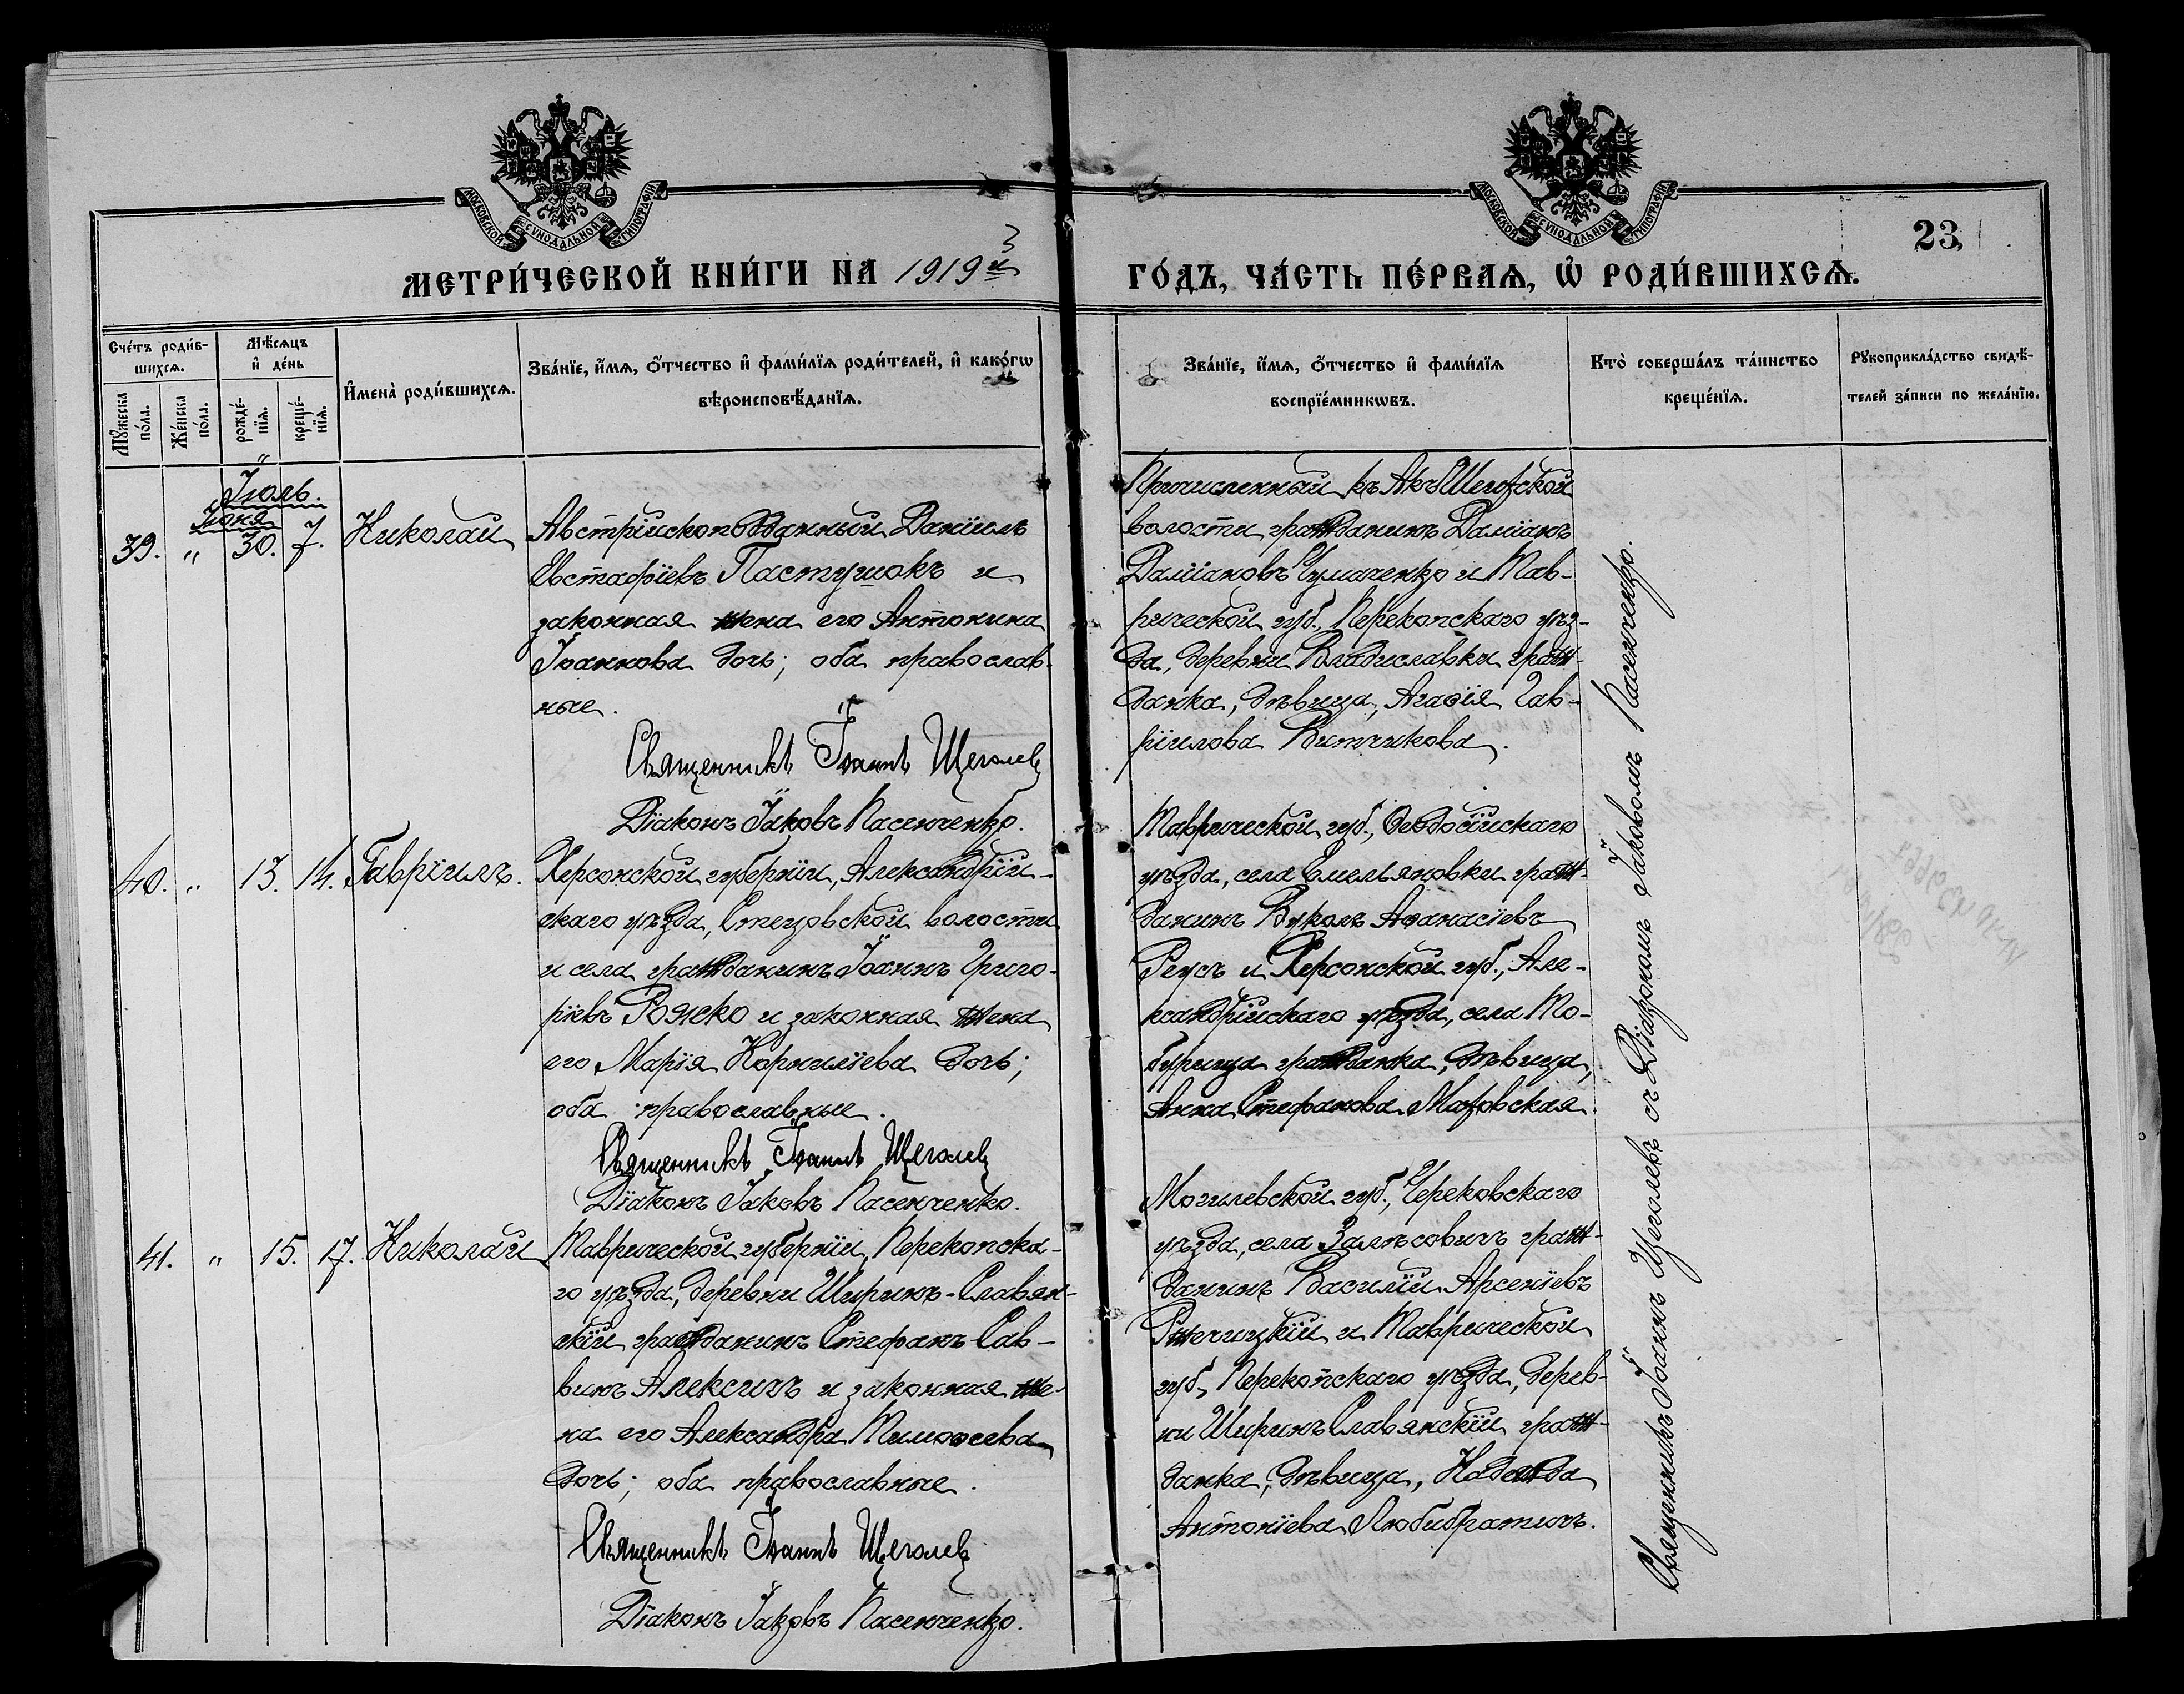 МОСКОВСКОЙ СѴНОДАЛЬНОЙ ТИПОГРАФІИ
МОСКОВСКОЙ СѴНОДАЛЬНОЙ ТИПОГРАФІИ
23
МЕТРИ́ЧЕСКОЙ КНИ́ГИ НА 1919й
ГО́ДЪ, ЧА́СТЬ ПЕ́РВАѦ, Ѡ҆ РОДИ́ВШИХСѦ.
Сче́тъ роди́в-
шихсѧ.
Мꙋ́жеска
по́ла.
Же́нска
по́ла.
Мѣ́сѧцъ
и҆ де́нь
рожде́-
нїѧ.
креще́-
нїѧ.
И҆мена̀ роди́вшихсѧ.
Зва́нїе, и҆́мѧ, ѻ҆́тчество и҆ фами́лїѧ роди́телей, и҆ како́гѡ
вѣроисповѣ́данїѧ.
Зва́нїе, и҆́мѧ, ѻ҆́тчество и҆ фами́лїѧ
воспрїе́мникѡвъ.
Кто̀ соверша́лъ та́инство
креще́нїѧ.
Рꙋкоприкла́дство свидѣ́-
телей за́писи по жела́нїю.
Іюль.
Іюня
39. " 30. 7. Николай
Австрійскоподданный Даніилъ
Евстафіевъ Пастушокъ и
законная жена его Антонина
Іоаннова дочь; оба православ-
ные.
Священникъ Іоаннъ Щеголев
Діаконъ Іаковъ Пасенченко.
Причисленный къ Акъ-Шейхской
волости гражданинъ Даміанъ
Даміановъ Чумаченко и Тав-
рической губ., Перекопскаго уѣз-
да, деревни Владиславки граж-
данка, дѣвица, Агафія Гав-
ріилова Витчикова.
40. " 13. 14. Гавріилъ.
Херсонской губерніи, Александрій-
скаго уѣзда, Стецовской волости
и села гражданинъ Іоаннъ Григо-
ріевъ Рожко и законная жена
его Марія Корниліева дочь;
оба православные.
Священникъ Іоаннъ Щеголев
Діаконъ Іаковъ Пасенченко.
Таврической губ., Ѳеодосійскаго
уѣзда, села Емельяновки граж-
данинъ Вуколъ Аѳанасіевъ
Реусъ и Херсонской губ., Але-
ксандрійскаго уѣзда, села
гражданка, дѣвица,
Анна Стефанова
41. " 15. 17. Николай
Таврической губерніи, Перекопска-
го уѣзда, деревни Ширинъ-Славян-
скій гражданинъ Стефанъ Сав-
винъ Алексичъ и законная же-
на его Александра Тимоѳеева
дочь; оба православные.
Священникъ Іоаннъ Щеголев
Діаконъ Іаковъ Пасенченко.
Могилевской губ., Чериковскаго
уѣзда, села Залѣсовичъ граж-
данинъ Василій Арсеніевъ
Ржечицкій и Таврической
губ., Перекопскаго уѣзда, дерев-
ни Ширинъ Славянскій граж-
данка, дѣвица, Надежда
Антоніева Любибратичъ.
Священникъ Іоаннъ Щеголевъ съ Діакономъ Іаковомъ Пасенченко.